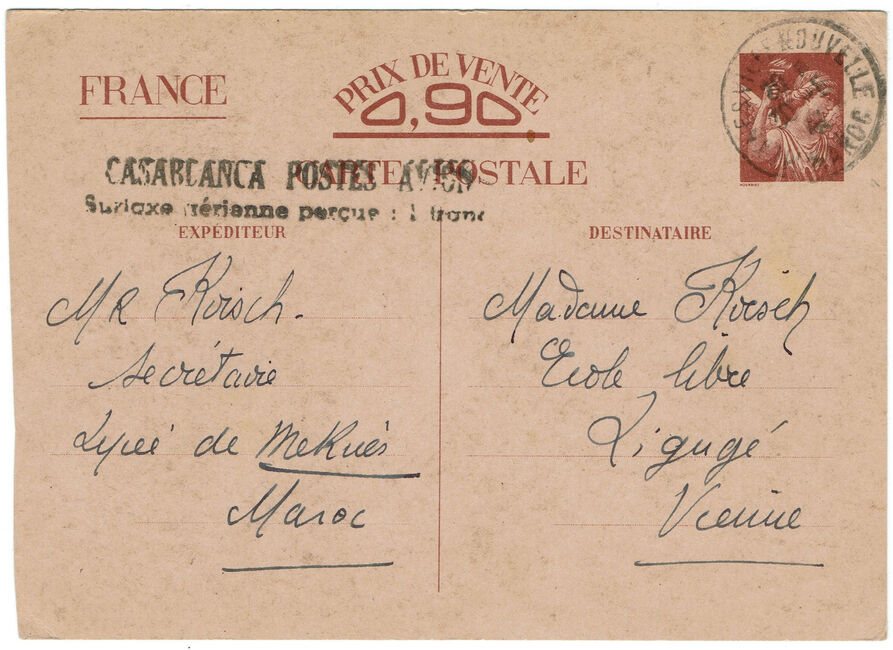 FRANCE
PRIX DE VENTE
0,90
CARTE POSTALE
CASABLANCA POSTES AVION
Surtaxe aérienne perçue : 1 franc
EXPÉDITEUR
Mr Koesch.
Secrétaire
Lycée de Meknès
Maroc
DESTINATAIRE
Madame Koesch
Ecole libre
Ligugé
Vienne
VILLE NOUVELLE
MAROC